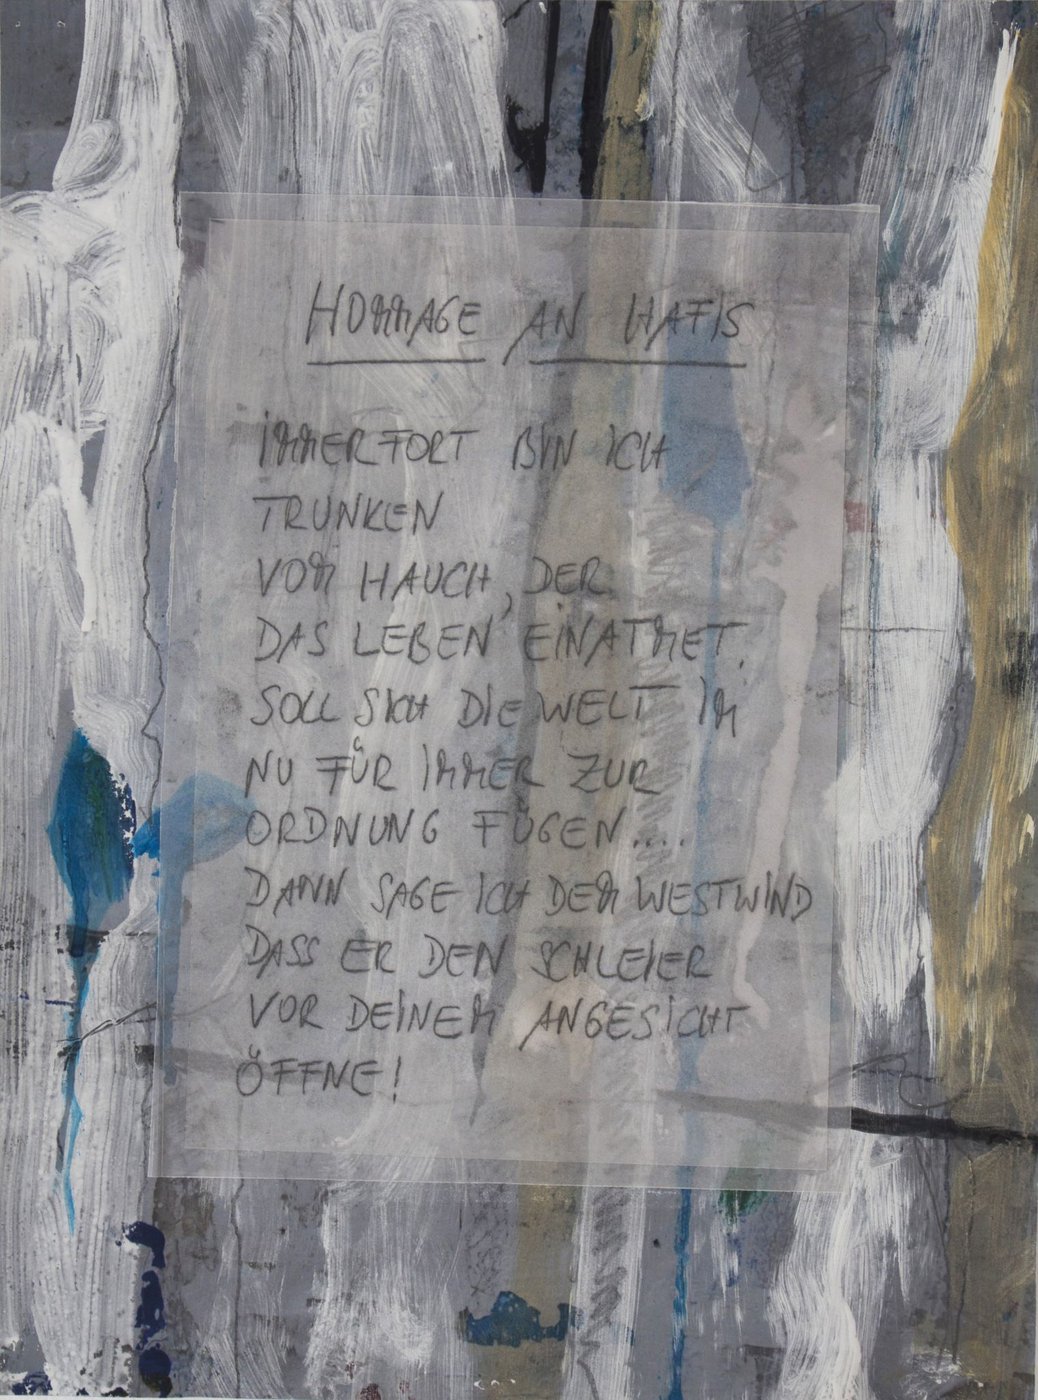 HOMMAGE AN HAFIS
IMMERFORT BIN ICH
TRUNKEN
VOM HAUCH, DER
DAS LEBEN EINATMET.
SOLL SICH DIE WELT IM
NU FÜR IMMER ZUR
ORDNUNG FÜGEN....
DANN SAGE ICH DEM WESTWIND
DASS ER DEN SCHLEIER
VOR DEINEM ANGESICHT
ÖFFNE!